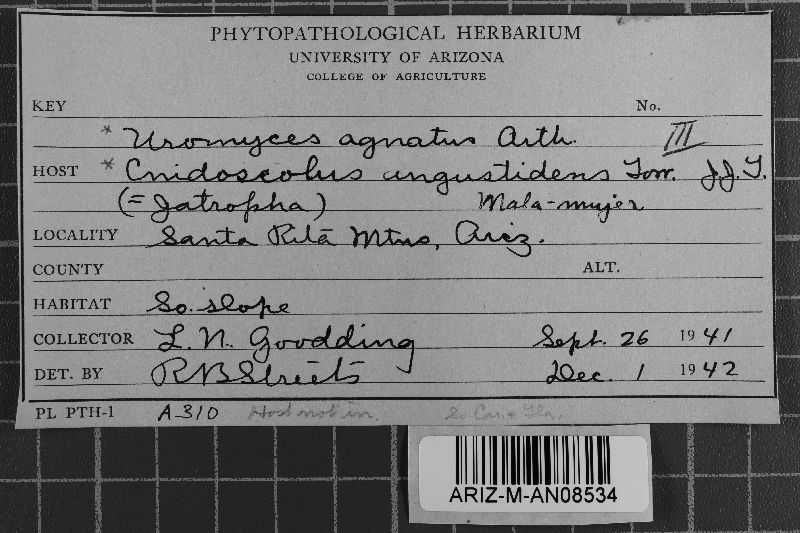 PHYTOPATHOLOGICAL HERBARIUM
UNIVERSITY OF ARIZONA
COLLEGE OF AGRICULTURE
KEY No.
* Uromyces agnatus Arth. III
HOST * Cnidoscolus angustidens Torr. J.J.T.
(= Jatropha) Mala-mujer
LOCALITY Santa Rita Mtns, Ariz.
COUNTY ALT.
HABITAT So. slope
COLLECTOR L. N. Goodding Sept. 26 1941
DET. BY RB Streets Dec. 1 1942
PL PTH-1 A-310 Host not in. So Car. + Fla.
ARIZ-M-AN08534